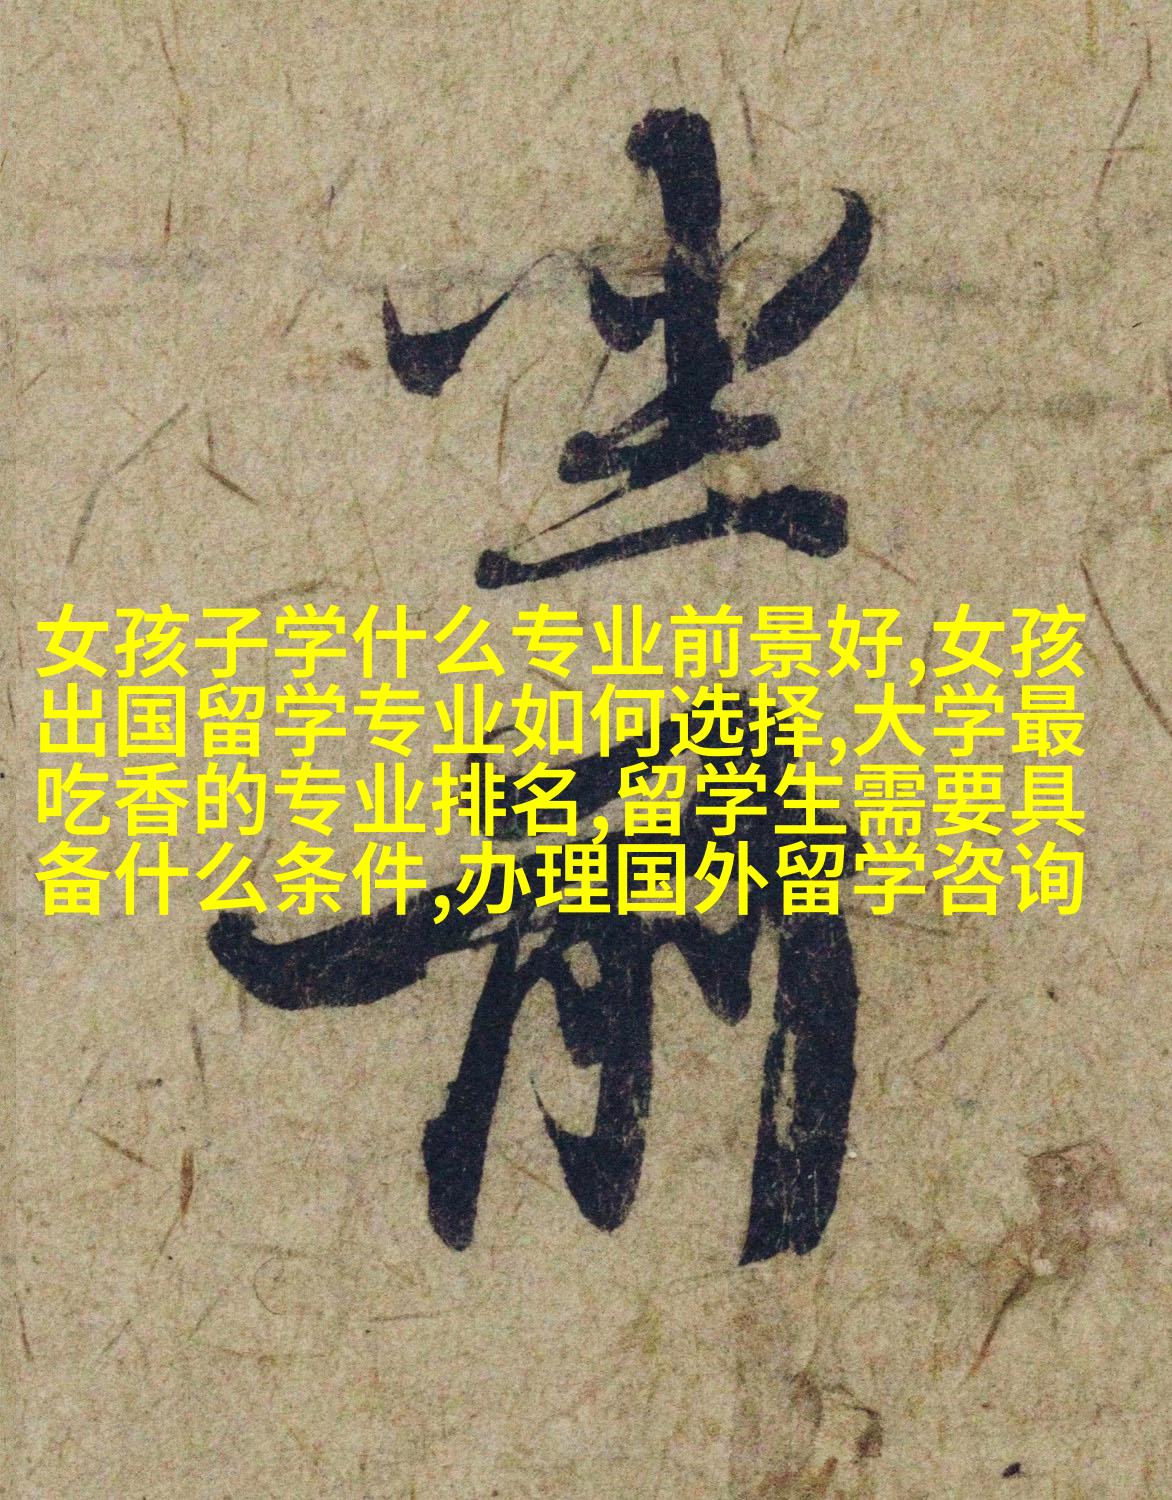 女孩子学什么专业前景好,女孩
出国留学专业如何选择,大学最
吃香的专业排名,留学生需要具
备什么条件,办理国外留学咨询